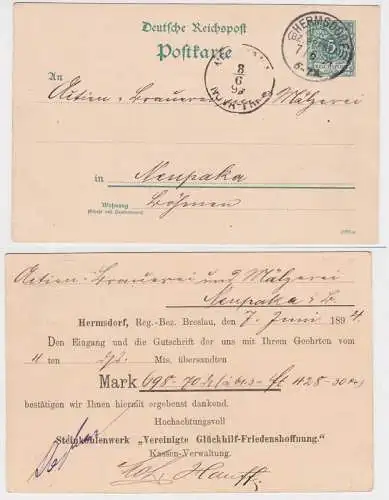 Deutsche Reichspost
Postkarte
HERMSDORF
7/6
6-7N
8
6
An
Actien-Brauerei und Mälzerei
in Neupaka
Wohnung
Böhmen
(Straße und Hausnummer)
Actien-Brauerei und Mälzerei
Neupaka i. B.
Hermsdorf, Reg.-Bez. Breslau, den 7. Juni 1894.
Den Eingang und die Gutschrift der uns mit Ihrem Geehrten vom
ten Mts. übersandten
Mark 698-70
bestätigen wir Ihnen hiermit ergebenst dankend.
Hochachtungsvoll
Steinkohlenwerk „Vereinigte Glückhilf-Friedenshoffnung."
Kassen-Verwaltung.